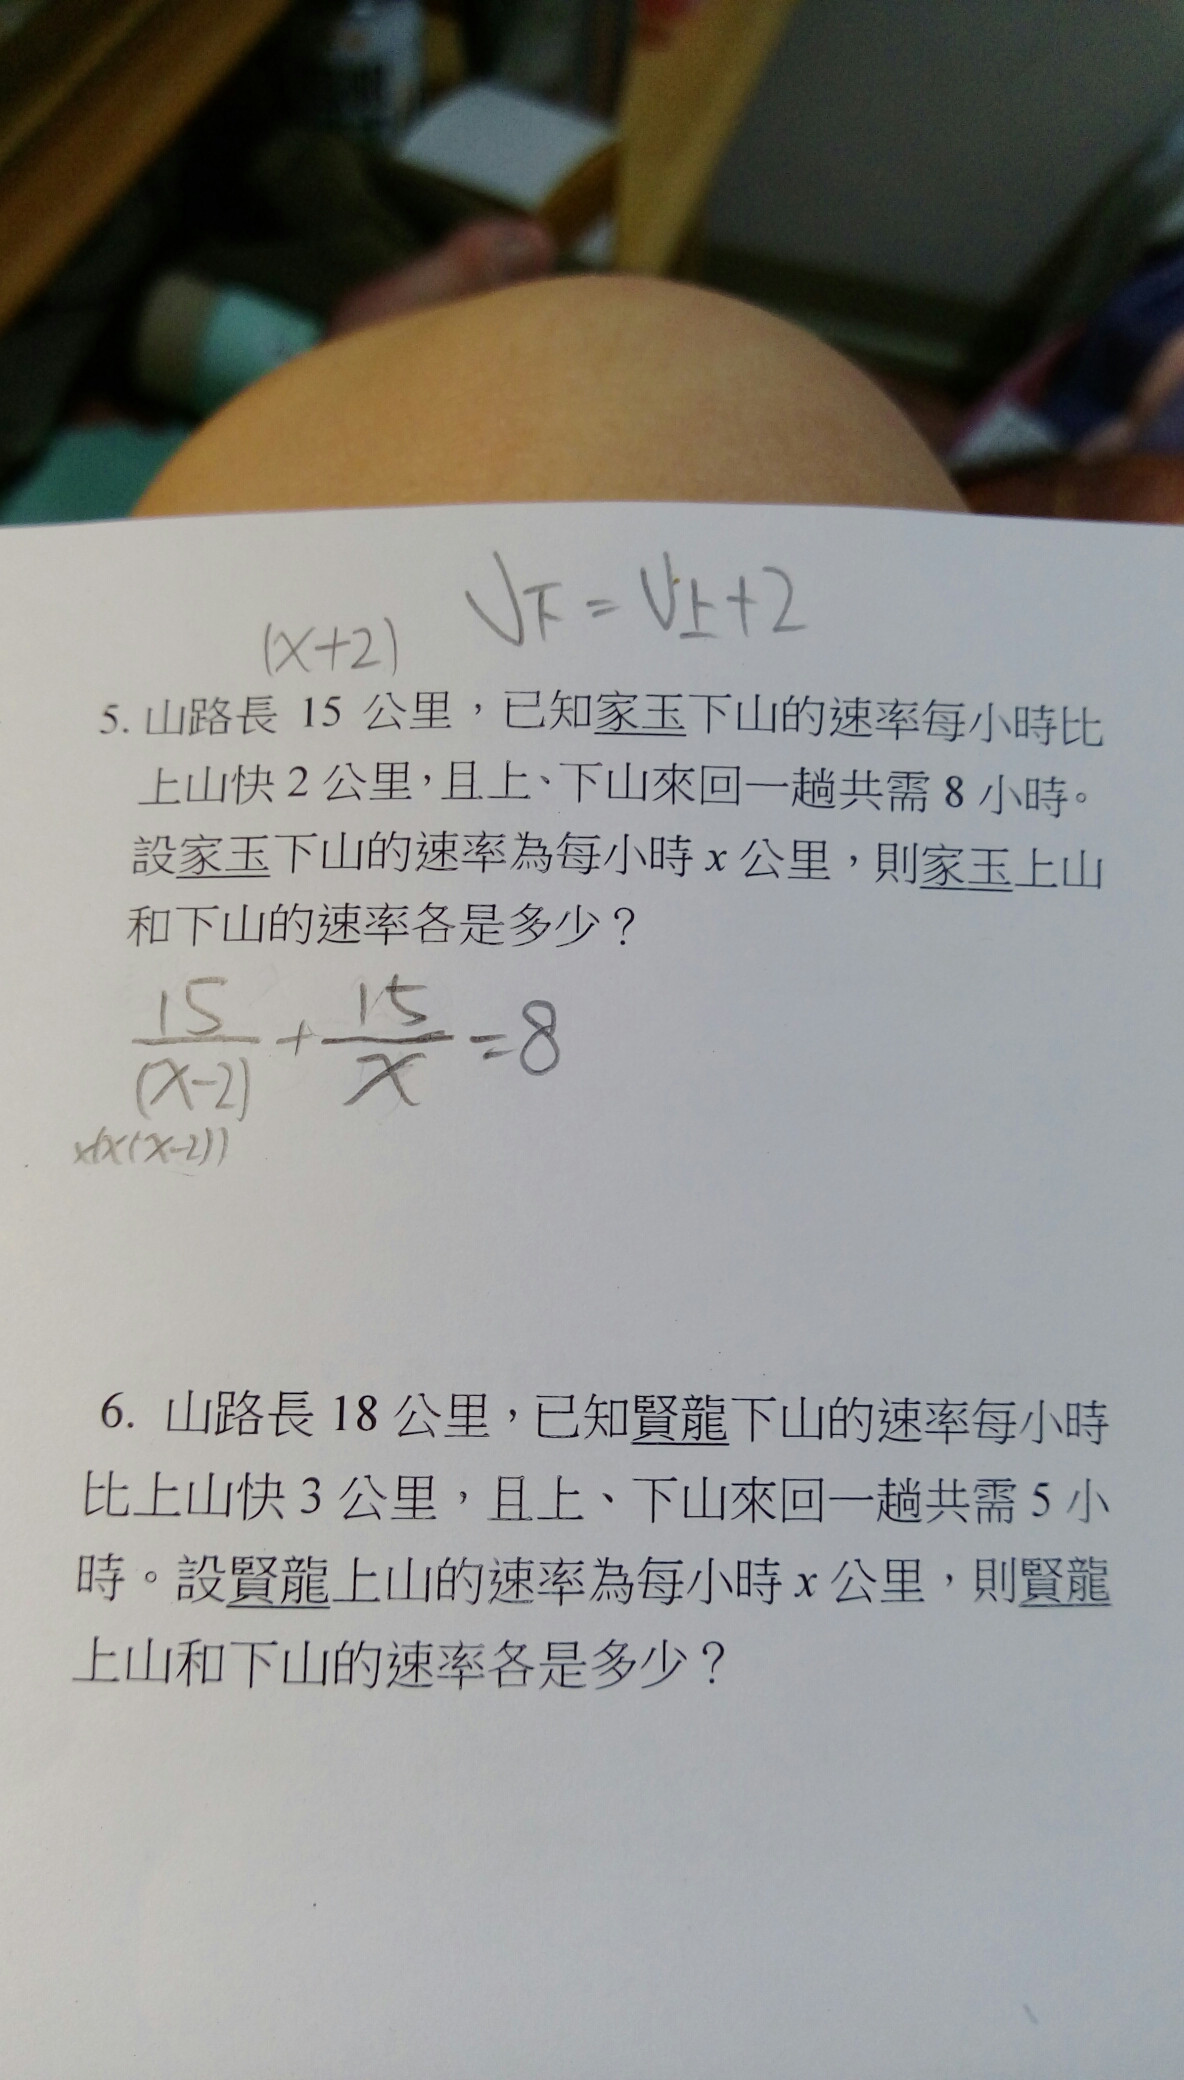 V下=V上+2
(x+2)
5. 山路長 15 公里，已知家玉下山的速率每小時比
上山快 2 公里，且上、下山來回一趟共需 8 小時。
設家玉下山的速率為每小時 x 公里，則家玉上山
和下山的速率各是多少？
15/(x-2) + 15/x = 8
x(x(x-2))
6. 山路長 18 公里，已知賢龍下山的速率每小時
比上山快 3 公里，且上、下山來回一趟共需 5 小
時。設賢龍上山的速率為每小時 x 公里，則賢龍
上山和下山的速率各是多少？